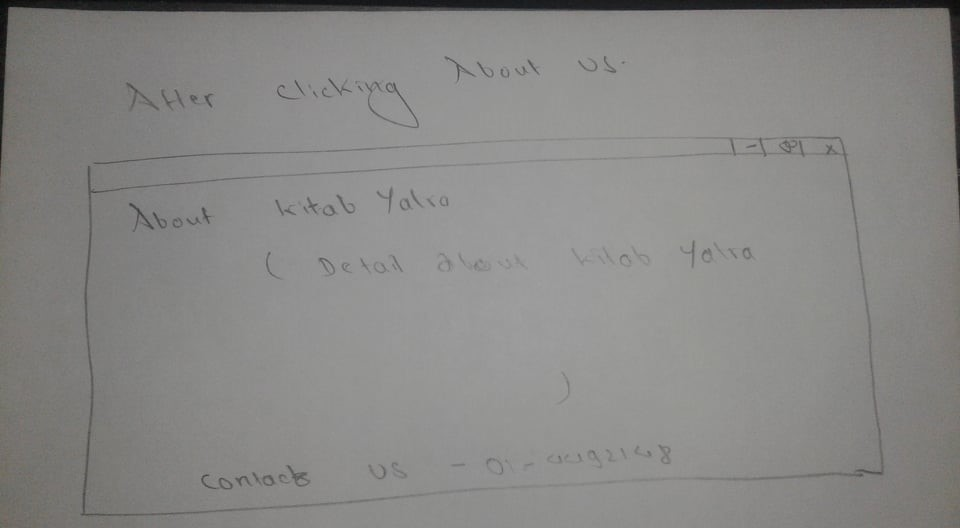 After clicking About us.
- x
About kitab Yatra
( Detail about kitab Yatra
)
Contacts us - 01-4492148